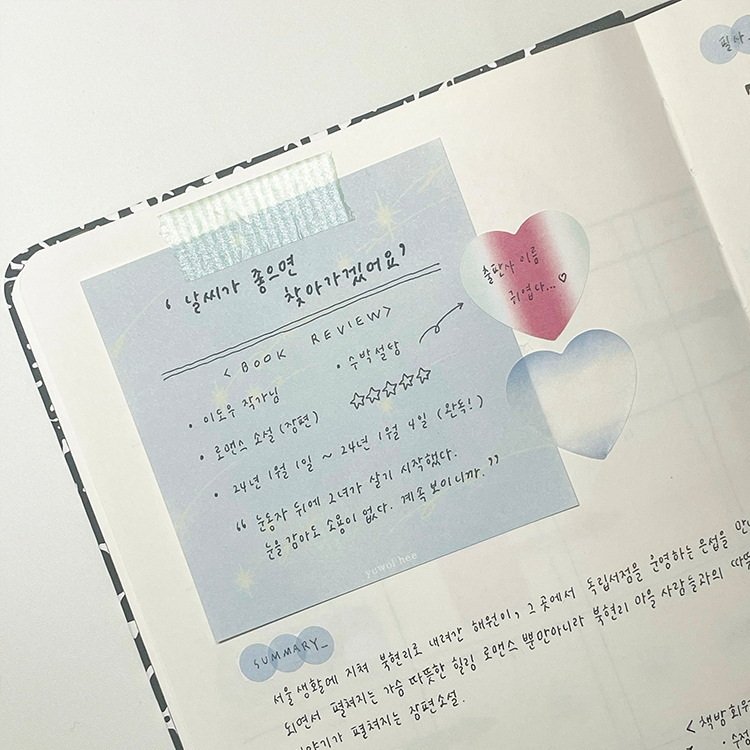 ' 날씨가 좋으면
찾아가겠어요'
< BOOK REVIEW >
• 이도우 작가님
• 수박설탕
출판사 이름
귀엽다...♡
• 로맨스 소설 (장편)
☆☆☆☆☆
• 24년 1월 1일 ~ 24년 1월 4일 (완독!)
“ 눈동자 뒤에 그녀가 살기 시작했다.
눈을 감아도 소용이 없다. 계속 보이니까. ”
yowol hee
SUMMARY_
서울 생활에 지쳐 북현리로 내려간 해원이, 그 곳에서 독립서점을 운영하는 은섭을
되면서 펼쳐지는 가슴 따뜻한 힐링 로맨스 뿐만아니라 북현리 마을 사람들과의
이야기가 펼쳐지는 장편소설.
필사
< 책방 회원